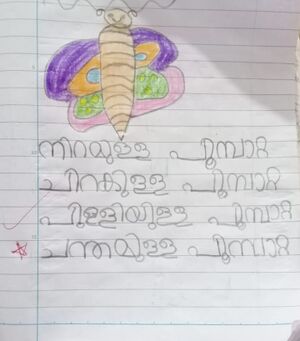 നിറമുള്ള പൂമ്പാറ്റ
ചിറകുള്ള പൂമ്പാറ്റ
പുള്ളിയുള്ള പൂമ്പാറ്റ
ചന്തമുള്ള പൂമ്പാറ്റ